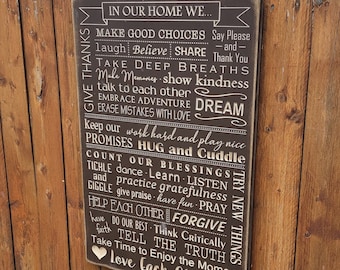 IN OUR HOME WE...
MAKE GOOD CHOICES
Say Please
and
Thank You
laugh Believe SHARE
GIVE THANKS
TAKE DEEP BREATHS
Make Memories · show kindness
talk to each other
EMBRACE ADVENTURE
DREAM
ERASE MISTAKES WITH LOVE
Keep our work hard and play nice
PROMISES HUG and Cuddle
COUNT OUR BLESSINGS
TRY NEW THINGS
TICKLE dance · Learn · LISTEN
and practice gratefulness
GIGGLE give praise · have fun · PRAY
HELP EACH OTHER FORGIVE
have faith DO OUR BEST · Think Critically
TELL THE TRUTH
Take Time to Enjoy the Mom
Love Each